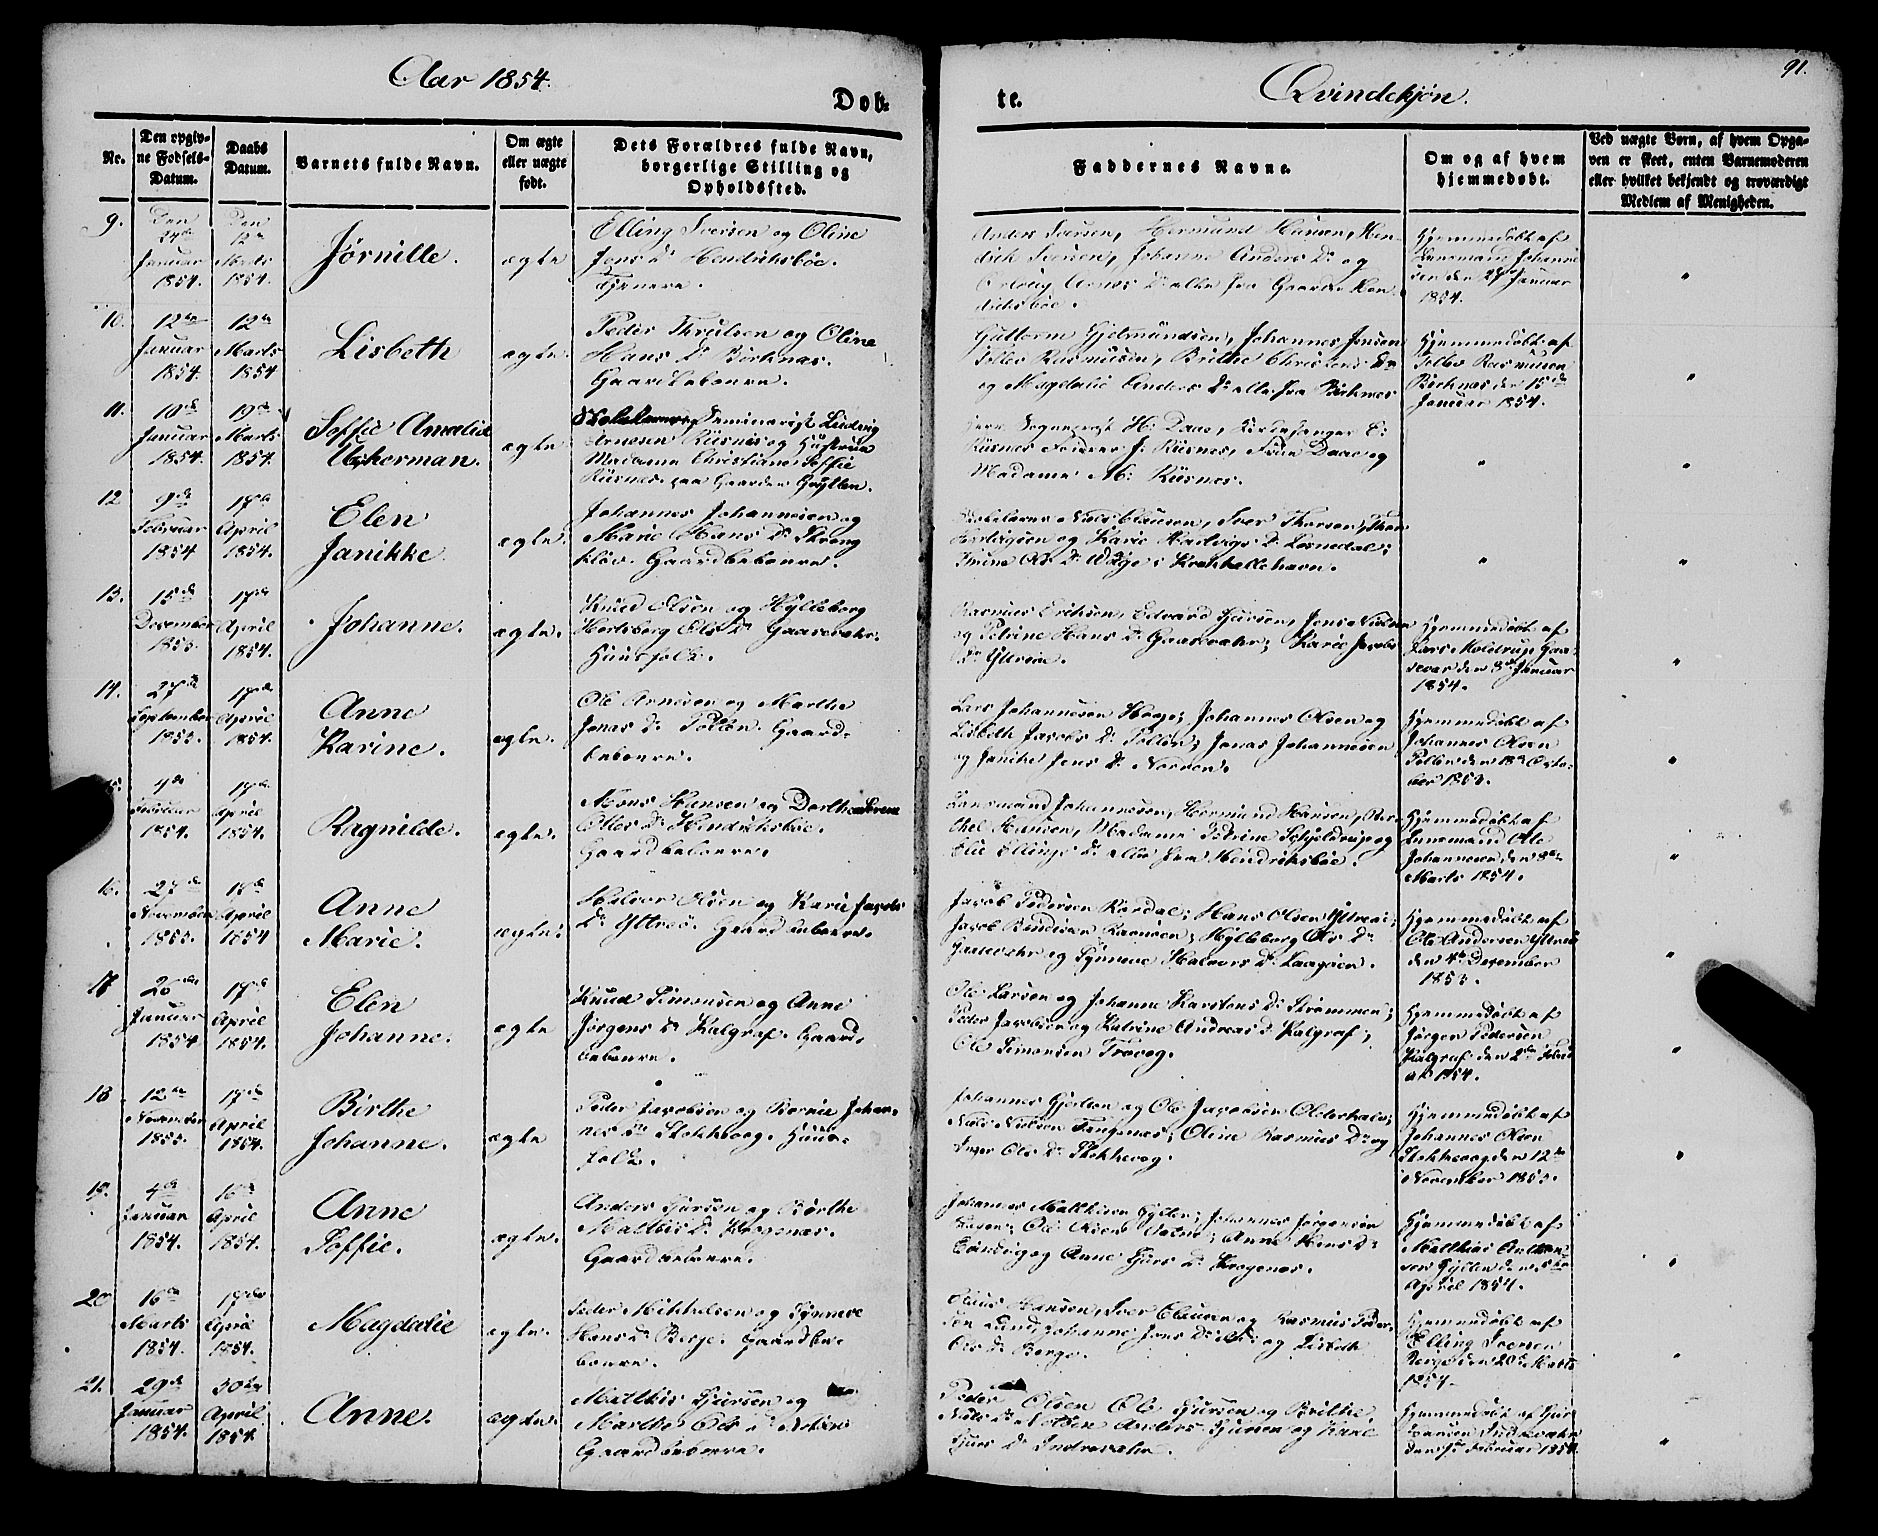 Aar 1854.
Døb-
te.
Qvindekjøn.
91.
Nr.
Den opgiv-
ne Fødsels-
Datum.
Daabs
Datum.
Barnets fulde Navn.
Om ægte
eller uægte
født.
Dets Forældres fulde Navn,
borgerlige Stilling og
Opholdssted.
Faddernes Navne.
Om og af hvem
hjemmedøbt.
Ved uægte Børn, af hvem Opga-
ven er skeet, enten Barnemoderen
eller hvilket bekjendt og troværdigt
Medlem af Menigheden.
9.
Den
Januar
1854.
Den
12te
Marts
1854.
Jørnille.
ægte
Elling Iversen og Oline
Jens Dr Hendriksbøe.
Anders Iversen, Hermund Hansen, Hen-
drik Iversen, Johanne Anders Dr og
Arnes Dr alle fra Gaarden Hen-
driksbøe.
Hjemmedøbt af
Johanne
den 27de Januar
1854.
10.
12te
Januar
1854.
12te
Marts
1854
Lisbeth
ægte.
Peder Truelsen og Oline
Hans Dr Birknæs.
Gaardbeboere.
Guttorm Gjelmundsen, Johannes Jensen
Rasmussen, Brithe Christens Dr
og Magdalie Anders Dr alle fra Birknæs
Hjemmedøbt af
Rasmusen
Birknæs den 15de
Januar 1854.
11.
10de
Januar
1854.
19de
Marts
1854.
Soffie Amalie
Uckerman.
ægte
Seminarist Ludvig
Risnes og Hustrue
Madame Christiane Soffie
Risnes paa Gaarden Hyllen.
Herr Sogneprest H: Daae, Kirkesanger
Risnes, J. Risnes, Frue Daae og
Madame M: Risnes.
12
9de
Februar
1854
17de
April
1854.
Elen
Janikke
ægte.
Johannes Johannesen og
Marie Hans Dr
Gaardbeboere.
Skolelærer Niels Clausen, Iver Thorsen,
og Karie Hartvigs Dr Losnedal;
Ols Dr Krakhellehavn.
13.
15de
December
1853.
17de
April
1854.
Johanne.
ægte.
Knud Olsen og Hylleborg
Hertsberg Ols Dr Gaasvahr.
Huusfolk.
Rasmus Eriksen, Edvard Gjursen, Jens Nielsen
og Petrine Hans Dr Gaasvahr; Karie Jacobs
Dr Yttreøe.
Hjemmedøbt af
Lars Moldrup Gaa-
svar den 3de Januar
1854.
14.
27de
September
1853.
17de
April
1854.
Anne
Karine.
ægte.
Ole Arnesen og Marthe
Jonas Dr Pollen. Gaard-
beboere.
Lars Johannesen Hage; Johannes Olsen og
Lisbeth Jacobs Dr Pollen; Jonas Johannesen
og Janike Jens Dr
Hjemmedøbt af
Johannes Olsen
Pollen den 13de Octo-
ber 1853.
15.
Februar
1854.
17de
April
1854.
Ragnilde.
ægte.
Mons Hansen og Dorthe
Olles Dr Hendriksbøe.
Gaardbeboere.
Lensmand Johannesen, Hermund Hansen,
Hansen, Madame Petrine Schjeldrup og
Elie Ellings Dr alle fra Hendriksbøe.
Hjemmedøbt af
Lensmand Ole
Johannesen den
Marts 1854.
16.
27de
November
1853.
17de
April
1854
Anne
Marie.
ægte.
Halvor Olsen og Karie Jacobs
Dr Yttreøe. Gaardbeboere.
Jacob Pedersen Rørdal; Hans Olsen Yttreøe;
Jacob Hylleborg Ols Dr
Gaasvahr og Synneve Halvors Dr Laagøen.
Hjemmedøbt af
Ole Andersen Yttreøe
den 4de December
1853.
17
26de
Januar
1854
17de
April
1854.
Elen
Johanne.
ægte
Knud Simonsen og Anne
Jørgens Dr Kalgraf. Gaard-
beboere.
Ole Larsen og Johanne Karstens Dr Strømmen;
Peder Jacobsen og Katrine Andreas Dr Kalgraf;
Ole Simonsen Trovog.
Hjemmedøbt af
Jørgen Pedersen
Kalgraf den 2den Febru-
ar 1854.
18
12te
November
1853.
17de
April
1854.
Birthe
Johanne.
ægte
Peder Jacobsen og Johan-
nes Dr Stokkevog. Huus-
folk.
Johannes og Ole Jacobsen Olderkalv;
Niels Nielsen Tungenæs; Oline Rasmus Dr og
Inger Ols Dr Stokkevog.
Hjemmedøbt af
Johannes Olsen
Stokkevog den 12te
November 1853.
19.
4de
Januar
1854.
16de
April
1854.
Anne
Soffie.
ægte.
Anders Gjursen og Børthe
Mathis Dr Kragenæs.
Gaardbeboere.
Johannes Matthisen Hyllen; Johannes Jørgensen
Ole Olsen Anne Hans Dr
og Anne Gjurs Dr Kragenæs.
Hjemmedøbt af
Matthias
Hyllen den
April 1854.
20
16de
Marts
1854.
17de
April
1854.
Magdalie
ægte.
Peder Mikkelsen og Synneve
Hans Dr Berge. Gaardbe-
boere.
Claus Hansen, Iver Clausen og Rasmus Peder-
sen Johanne Jens Dr og Lisbeth
Ols Dr Berge.
Hjemmedøbt af
Elling Iversen
Berge den 20de Marts
1854.
21.
29de
Januar
1854.
30te
April
1854.
Anne.
ægte.
Mathis Gjursen og
Marthe Ols Dr
Gaardbeboere.
Peder Olsen Ole Gjursen og Brithe
Niels Dr Anders Gjursen og Kari
Gjurs Dr Indrevahr.
Hjemmedøbt af Gjur
Indrevahr
den Februar 1854.